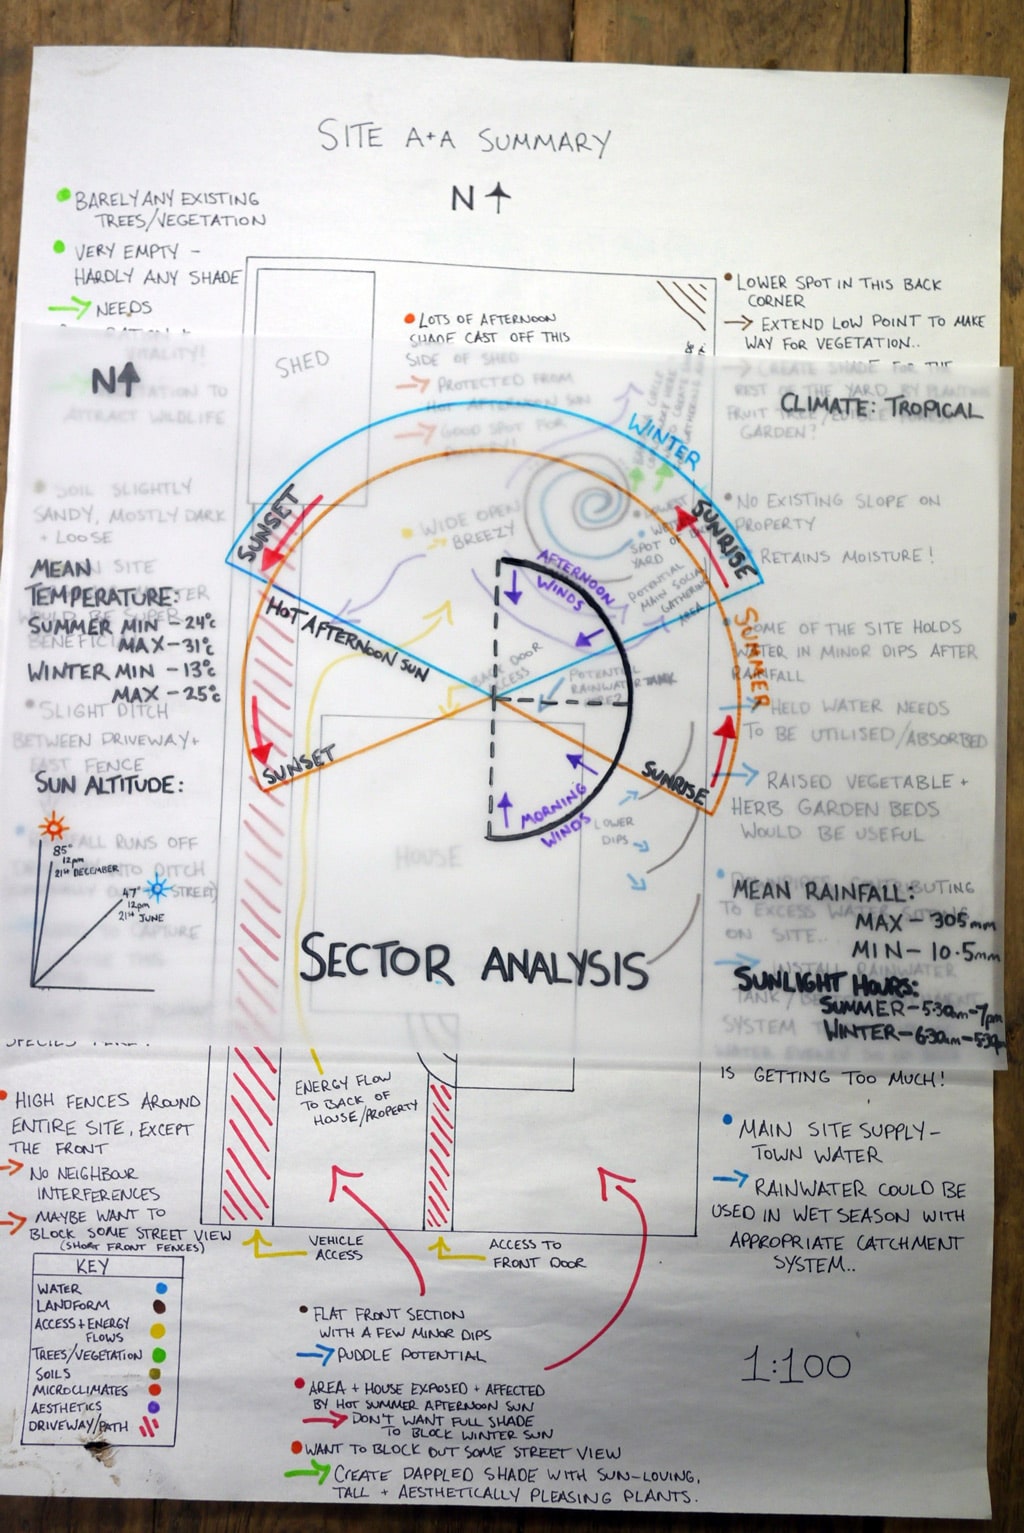 SITE A+A SUMMARY
N
BARELY ANY EXISTING
TREES/VEGETATION
VERY EMPTY -
HARDLY ANY SHADE
NEEDS
SHED
LOTS OF AFTERNOON
SHADE CAST OFF THIS
SIDE OF SHED
PROTECTED FROM
HOT AFTERNOON SUN
GOOD SPOT FOR
LOWER SPOT IN THIS BACK
CORNER
EXTEND LOW POINT TO MAKE
WAY FOR VEGETATION..
CREATE SHADE FOR THE
REST OF THE YARD BY PLANTING
FRUIT TREE/EDIBLE FOREST
GARDEN?
N
VITALITY!
ATTRACT WILDLIFE
CLIMATE: TROPICAL
WINTER
SUNSET
SUNRISE
SOIL SLIGHTLY
SANDY, MOSTLY DARK
+ LOOSE
WIDE OPEN
BREEZY
NO EXISTING SLOPE ON
PROPERTY
RETAINS MOISTURE!
MEAN
TEMPERATURE:
SUMMER MIN - 24°C
MAX - 31°C
WINTER MIN - 13°C
MAX - 25°C
HOT AFTERNOON SUN
AFTERNOON
WINDS
POTENTIAL
MAIN SOCIAL
GATHERING
AREA
SUMMER
BACK DOOR
ACCESS
POTENTIAL
RAINWATER TANK
SOME OF THE SITE HOLDS
WATER IN MINOR DIPS AFTER
RAINFALL
HELD WATER NEEDS
TO BE UTILISED/ABSORBED
RAISED VEGETABLE +
HERB GARDEN BEDS
WOULD BE USEFUL
SLIGHT DITCH
BETWEEN DRIVEWAY +
EAST FENCE
SUNSET
SUNRISE
MORNING
WINDS
LOWER
DIPS
HOUSE
SUN ALTITUDE:
85°
12pm
21st DECEMBER
47°
12pm
21st JUNE
SECTOR ANALYSIS
MEAN RAINFALL:
MAX - 305mm
MIN - 10.5mm
SUNLIGHT HOURS:
SUMMER - 5:30am - 7pm
WINTER - 6:30am - 5:30pm
IS GETTING TOO MUCH!
ENERGY FLOW
TO BACK OF
HOUSE/PROPERTY
HIGH FENCES AROUND
ENTIRE SITE, EXCEPT
THE FRONT
NO NEIGHBOUR
INTERFERENCES
MAYBE WANT TO
BLOCK SOME STREET VIEW
(SHORT FRONT FENCES)
MAIN SITE SUPPLY -
TOWN WATER
RAINWATER COULD BE
USED IN WET SEASON WITH
APPROPRIATE CATCHMENT
SYSTEM..
VEHICLE
ACCESS
ACCESS TO
FRONT DOOR
KEY
WATER
LANDFORM
ACCESS + ENERGY
FLOWS
TREES/VEGETATION
SOILS
MICROCLIMATES
AESTHETICS
DRIVEWAY/PATH
FLAT FRONT SECTION
WITH A FEW MINOR DIPS
PUDDLE POTENTIAL
AREA + HOUSE EXPOSED + AFFECTED
BY HOT SUMMER AFTERNOON SUN
DON'T WANT FULL SHADE
TO BLOCK WINTER SUN
WANT TO BLOCK OUT SOME STREET VIEW
CREATE DAPPLED SHADE WITH SUN-LOVING,
TALL + AESTHETICALLY PLEASING PLANTS.
1:100